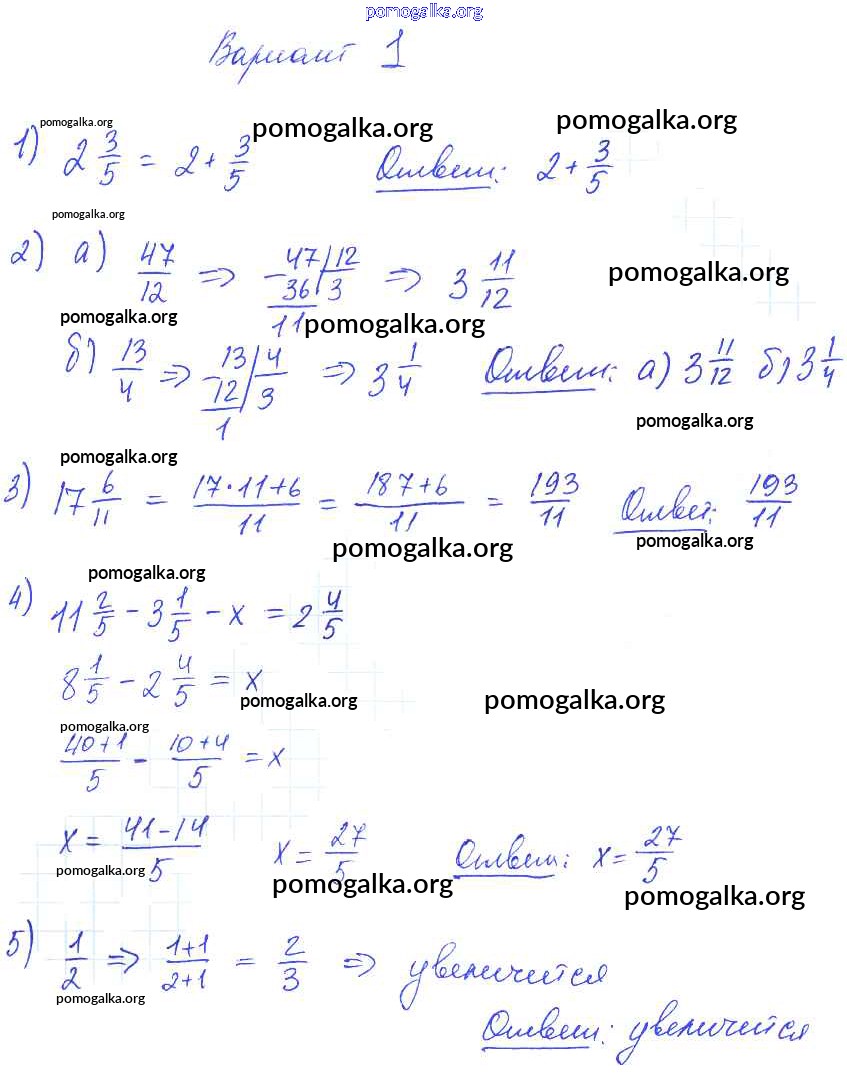 pomogalka.org
Вариант 1
pomogalka.org pomogalka.org pomogalka.org
1) 2 3/5 = 2 + 3/5 Ответ: 2 + 3/5
pomogalka.org
2) а) 47/12 ⇒ 47 | 12 ⇒ 3 11/12
- 36 | 3
11
pomogalka.org
pomogalka.org pomogalka.org
б) 13/4 ⇒ 13 | 4 ⇒ 3 1/4 Ответ: а) 3 11/12 б) 3 1/4
- 12 | 3
1
pomogalka.org
pomogalka.org
3) 17 6/11 = (17·11+6)/11 = (187+6)/11 = 193/11 Ответ: 193/11
pomogalka.org pomogalka.org
pomogalka.org
4) 11 2/5 - 3 1/5 - x = 2 4/5
8 1/5 - 2 4/5 = x
pomogalka.org pomogalka.org
pomogalka.org
(40+1)/5 - (10+4)/5 = x
x = (41-14)/5 x = 27/5 Ответ: x = 27/5
pomogalka.org pomogalka.org pomogalka.org
5) 1/2 ⇒ (1+1)/(2+1) = 2/3 ⇒ увеличится
pomogalka.org
Ответ: увеличится